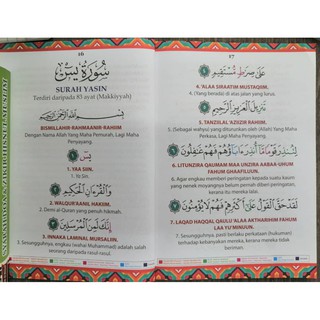 46
سُورَةُ يٰسٓ
SURAH YASIN
Terdiri daripada 83 ayat (Makkiyyah)
بِسْمِ اللّٰهِ الرَّحْمٰنِ الرَّحِيْمِ
BISMILLAHIR-RAHMAANIR-RAHIIM
Dengan Nama Allah Yang Maha Pemurah, Lagi Maha
Penyayang.
يٰسٓ
1. YAA SIIN.
1. Ya Sin.
وَالْقُرْاٰنِ الْحَكِيْمِ
2. WALQUR'AANIL HAKIIM.
2. Demi al-Quran yang penuh hikmah.
اِنَّكَ لَمِنَ الْمُرْسَلِيْنَ
3. INNAKA LAMINAL MURSALIIN.
3. Sesungguhnya, engkau (wahai Muhammad) adalah salah
seorang daripada rasul-rasul.
47
عَلٰى صِرَاطٍ مُّسْتَقِيْمٍ
4. 'ALAA SIRAATIM MUSTAQIIM.
4. (Yang berada) di atas jalan yang lurus.
تَنْزِيْلَ الْعَزِيْزِ الرَّحِيْمِ
5. TANZIILAL 'AZIZIR RAHIIM.
5. (Sebagai wahyu) yang diturunkan oleh (Allah) Yang Maha
Perkasa, Lagi Maha Penyayang.
لِتُنْذِرَ قَوْمًا مَّآ اُنْذِرَ اٰبَآؤُهُمْ فَهُمْ غٰفِلُوْنَ
6. LITUNZIRA QAUMAM MAA UNZIRA AABAA-UHUM
FAHUM GHAAFILUUN.
6. Agar engkau memberi peringatan kepada suatu kaum
yang nenek moyangnya belum pernah diberi peringatan,
kerana itu mereka lalai.
لَقَدْ حَقَّ الْقَوْلُ عَلٰٓى اَكْثَرِهِمْ فَهُمْ لَا يُؤْمِنُوْنَ
7. LAQAD HAQQAL QAULU 'ALAA AKTHARIHIM FAHUM
LAA YU'MINUUN.
7. Sesungguhnya, pasti berlaku perkataan (hukuman)
terhadap kebanyakan mereka, kerana mereka tidak
beriman.